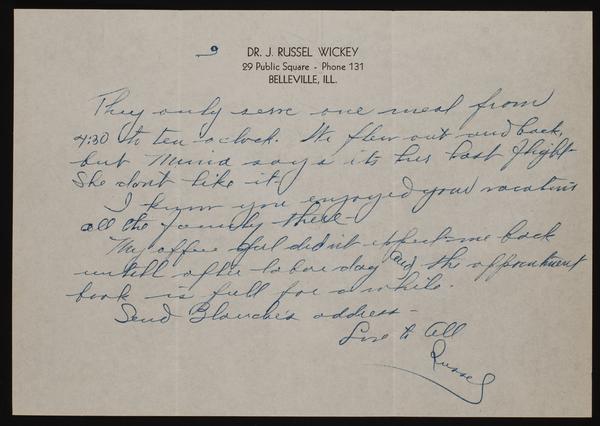 9
DR. J. RUSSEL WICKEY
29 Public Square - Phone 131
BELLEVILLE, ILL.
They only serve one meal from
4:30 to ten o-clock. We flew out and back,
but says its her last flight-
She dont like it.
I know you enjoyed your vacation
all the family there-
My office didn't expect me back
untill after labor day and the appointment
book is full for a while.
Send Blanche's address-
Love to All
Russel